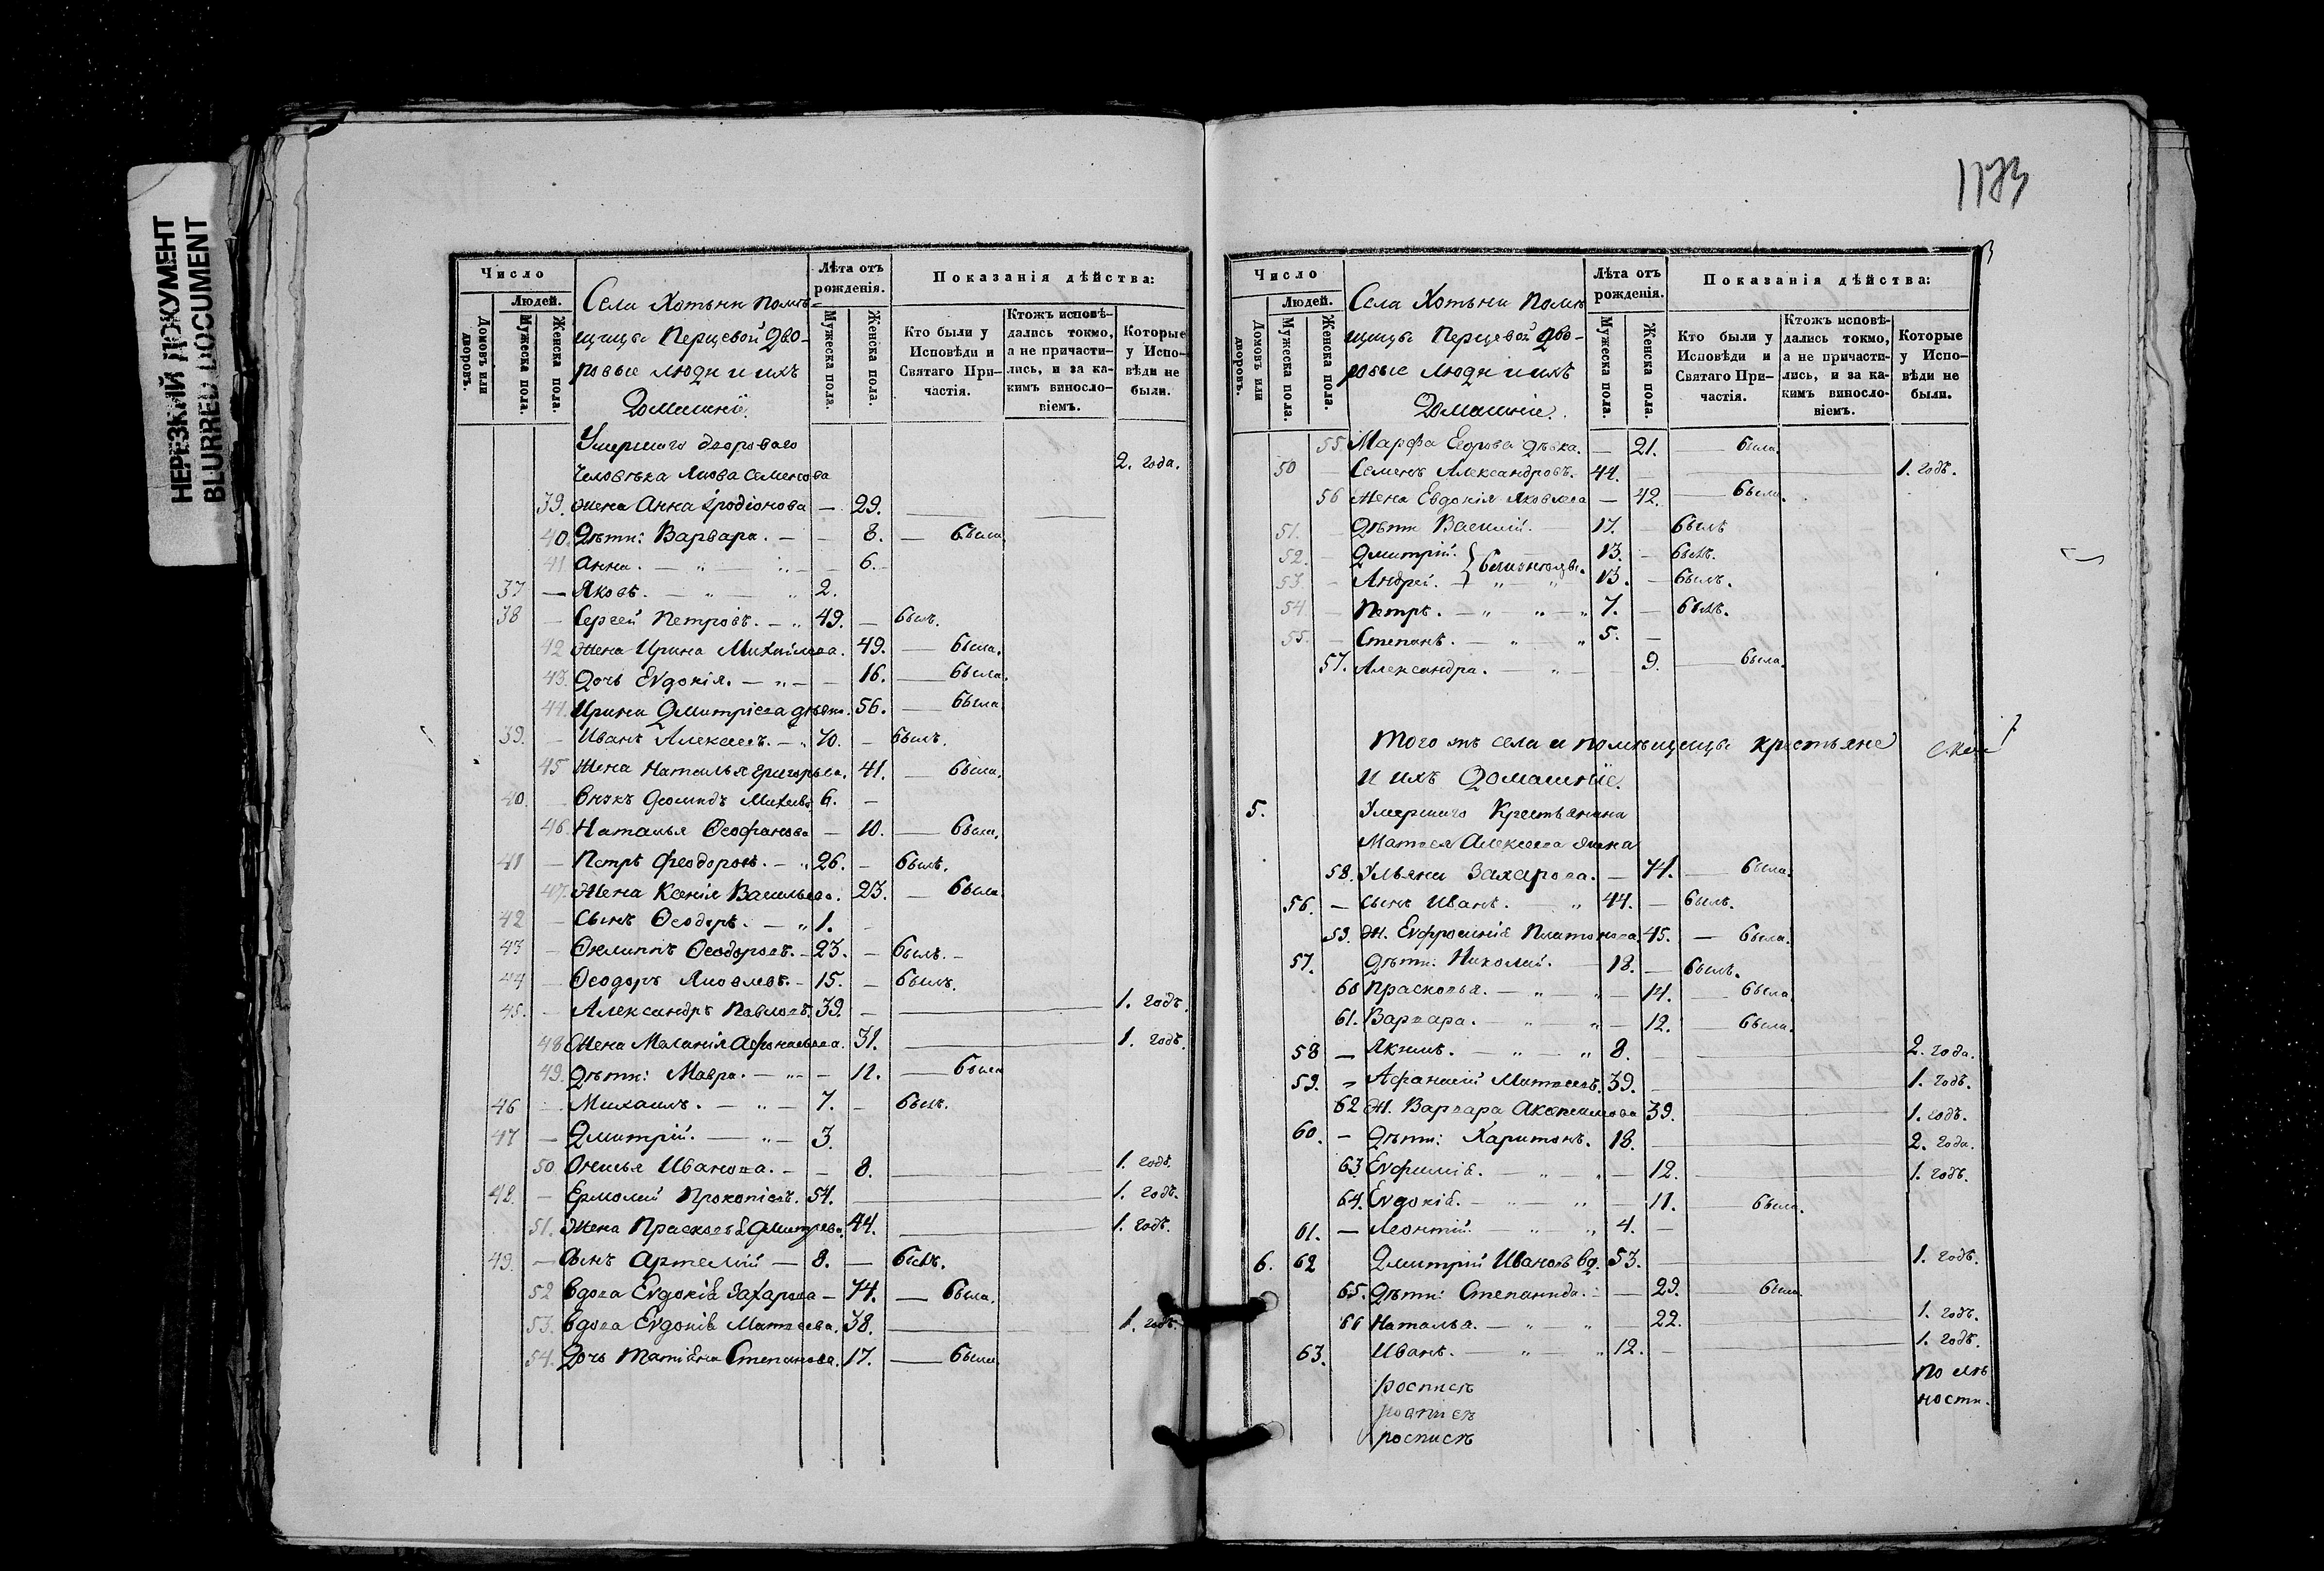 НЕРЕЗКИЙ ДОКУМЕНТ
BLURRED DOCUMENT
Число
Людей.
Домовъ или дворовъ.
Мужеска пола.
Женска пола.
Села Хотыни помѣ-
щицы Перцевой Дво-
ровые люди и ихъ
Домашніе.
Лѣта отъ рожденія.
Мужеска пола.
Женска пола.
Показанія дѣйства:
Кто были у Исповѣди и Святаго При-частія.
Ктожъ исповѣ-дались токмо, а не причасти-лись, и за ка-кимъ виносло-віемъ.
Которые у Испо-вѣди не были.
Умершаго двороваго
человѣка Якова Семенова 2. года.
39. жена Анна Иродіонова — 29.
40. Дѣти: Варвара. — — 8. — была
41 Анна. — „ — 6.
37 — Яковъ. — „ — „ 2.
38 — Сергей Петровъ. — „ 49. — былъ.
42 Жена Ирина Михайлова. 49. — была.
43. Дочь Евдокія. — „ — 16. — была.
44. Ирина Дмитріева дѣвка. 56. — была
39. — Иванъ Алексеевъ. — „ 70. — былъ.
45 Жена Наталья Григорьева. 41. — была.
40. внукъ 6. —
46. Наталья Ѳеофанова — 10. — была.
41 — Петръ Феодоровъ. — „ 26. — былъ.
47. Жена Ксенія Васильева. 23. — была
42 — Сынъ Ѳеодоръ. — „ 1.
43 — Филиппъ Ѳеодоровъ. — 23. — былъ. —
44 — Ѳеодоръ Яковлевъ. — 15. — былъ.
45. — Александръ Павловъ. 39. — 1. годъ.
48 Жена Меланія Афонасьева. 31. 1. годъ.
49. Дѣти: Мавра. — „ — 11. — была
46 — Михаилъ. — „ — 7. — былъ.
47 — Дмитрій. — „ — 3.
50. Иванова. — — 8. 1. годъ.
48. — Ермолай Прокопіевъ. 54. 1. годъ.
51. Жена Прасковья Дмитрева. 44. 1. годъ.
49. — Сынъ Артемій — 8. — былъ.
52 вдова Евдокія Захарова — 74. — была.
53. вдова Евдокія Матвеева. 38. 1. годъ.
54. Дочь Татіяна Степанова. 17. — была
1173
Число
Людей.
Домовъ или дворовъ.
Мужеска пола
Женска пола.
Села Хотыни Помѣ
щицы Перцевой Дво-
ровые люди и ихъ
Домашніе.
Лѣта отъ рожденія.
Мужеска пола.
Женска пола.
Показанія дѣйства:
Кто были у Исповѣди и Святаго При-частія.
Ктожъ исповѣ-дались токмо, а не причасти-лись, и за ка-кимъ виносло-віемъ.
Которые у Испо-вѣди не были.
55. Марфа Егорова дѣвка. — 21. — была.
50 — Семенъ Александровъ. 44. — 1. годъ.
56 Жена Евдокія Яковлева — 42. — была.
51. Дѣти Василій. — 17. — былъ
52. — Дмитрій. } близнецы. 13. — былъ.
53 — Андрей. „ „ 13. — былъ.
54 — Петръ. — „ „ — „ 7. — былъ.
55. — Степанъ. — „ „ 5. —
57. Александра. — „ — 9. — была.
Того жъ села и помѣщицы крестьяне
и ихъ Домашніе.
5. Умершаго Крестьянина
Матвея Алексеева жена
58. Ульяна Захарова. — 74. — была.
56. — сынъ Иванъ. — „ 44. — былъ.
59. Ж. Евфросинія Платонова. 45. — была.
57. Дѣти: Николай. — 18. — былъ.
60 Прасковья. — „ — „ — 14. — была.
61. Варвара. — „ — „ — 12. — была.
58 — Якимъ. — „ — „ 8. 2. года.
59. — Афанасій Матвеевъ. 39. 1. годъ.
62 Ж. Варвара 39. 1. годъ.
60. — Дѣти: Харитонъ. 18. 2. года.
63 Евфимія. — „ — „ — 12. 1. годъ.
64. Евдокія. — „ — „ — 11. была.
61. — Леонтій. „ „ 4. —
6. 62 Дмитрій Ивановъ вд. 53. 1. годъ.
65. Дѣти: Степанида. — — 29. — была.
66 Наталья. — „ — „ — 22. 1. годъ.
63. Иванъ. — „ — „ 12. — 1. годъ.
росписѣ
росписѣ
росписѣ
по мѣ
ности.